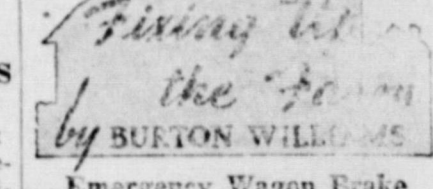 Fixing Up
the Farm
by BURTON WILLIAMS
Emergency Wagon Brake
s